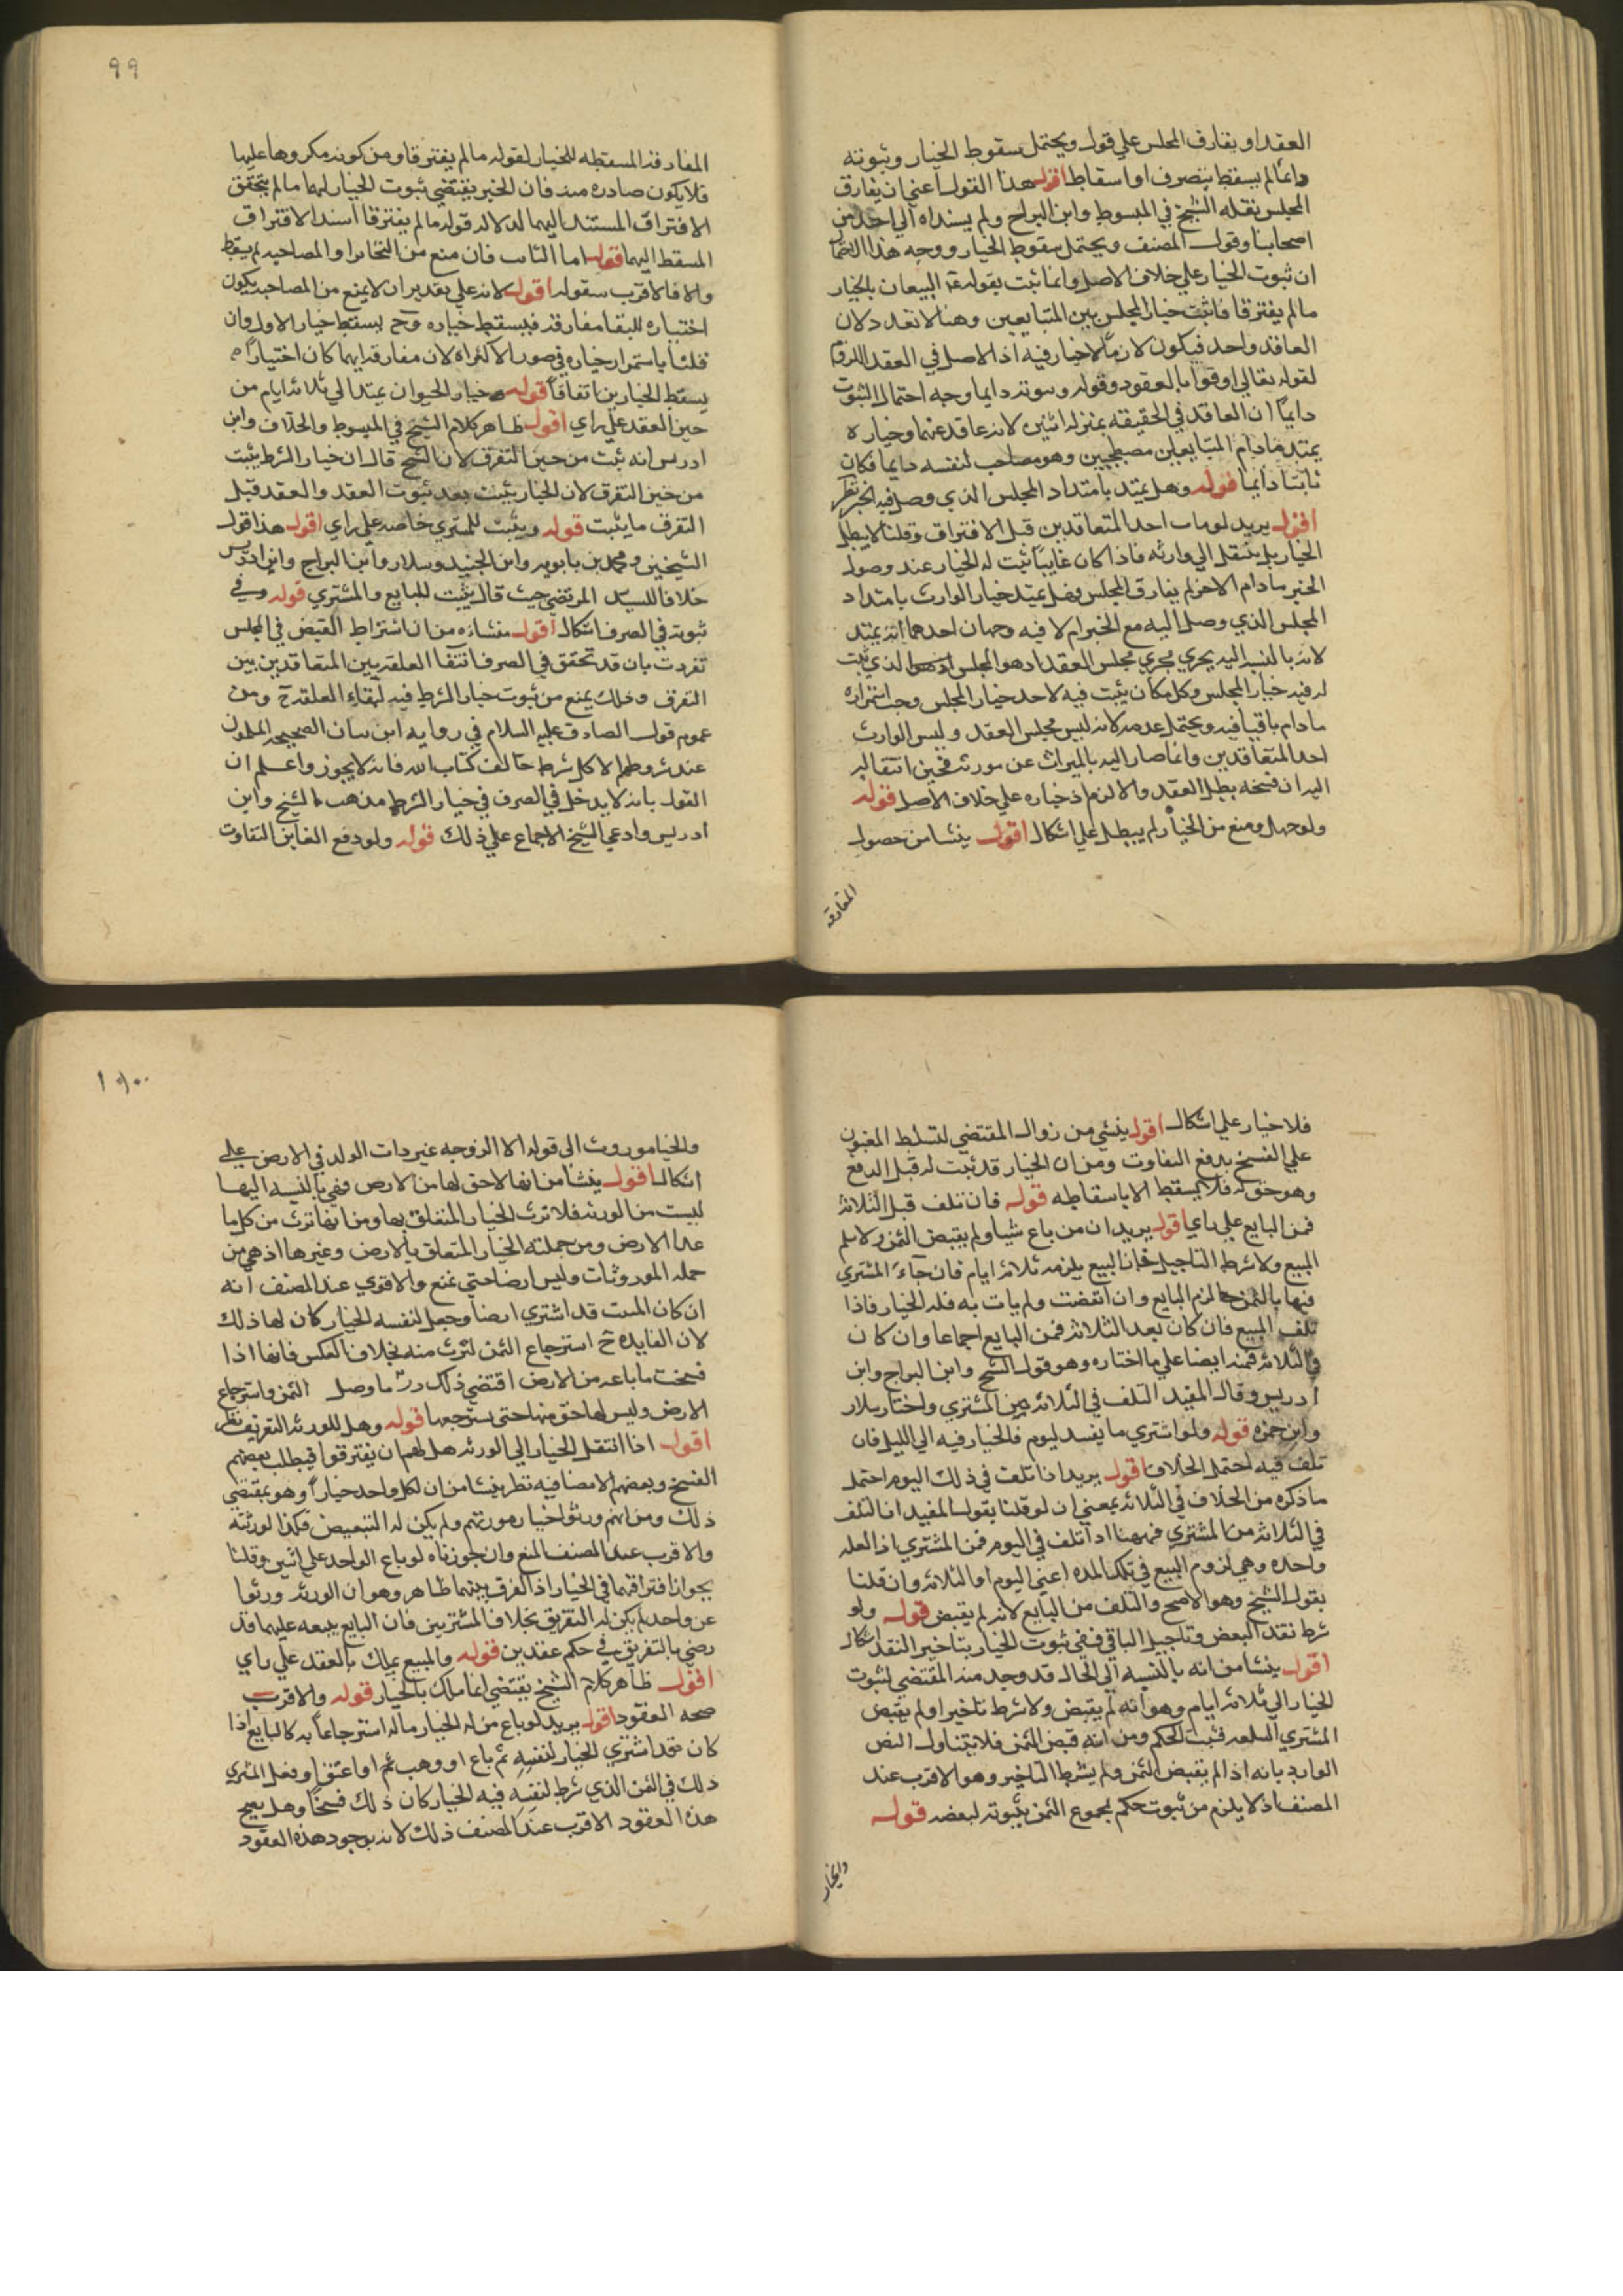 العقد او يفارق المجلس علي قول ويحتمل سقوط الخيار وثبوته
دائما لم يسقط بتصرف او اسقاط اقول هذا القول اعني ان يفارق
المجلس نقله الشيخ في المبسوط وابن البراج ولم يسنداه الي احد من
اصحابنا وقول المصنف ويحتمل سقوط الخيار ووجه هذا الاحتمال
ان ثبوت الخيار علي خلاف الاصل وانما ثبت بقوله البيعان بالخيار
مالم يفترقا فاثبت خيار المجلس بين المتبايعين وهنا لا تعدد لان
العاقد واحد فيكون لازما لاخيار فيه اذ الاصل في العقد اللزوم
لقوله تعالي اوفوا بالعقود وقوله وثبوته دايما وجه احتمال الثبوت
دايما ان العاقد في الحقيقه بمنزله اثنين لانه عاقد عنهما وخياره
يمتد مادام المتبايعين مصطحبين وهو مصاحب لنفسه دايما فكان
ثابتا دائما قوله وهل يمتد بامتداد المجلس الذي وصل فيه الخبر نظر
اقول يريد لو مات احد المتعاقدين قبل الافتراق وقلنا لا يبطل
الخيار بل ينتقل الي وارثه فاذا كان غايبا ثبت له الخيار عند وصول
الخبر مادام الاخر لم يفارق المجلس وهل يمتد خيار الوارث بامتداد
المجلس الذي وصل اليه مع الخبر ام لا فيه وجهان احدهما انه يمتد
لانه بالنسبه اليه يجري مجري مجلس العقد اذ هو المجلس الذي ثبت
له فيه خيار المجلس وكل مكان يثبت فيه لاحد خيار المجلس وجب استمراره
مادام باقيا فيه ويحتمل عدمه لانه ليس مجلس العقد وليس الوارث
احد المتعاقدين وانما صار اليه بالميراث عن مورثه فحين انتقاله
اليه ان فسخه بطل العقد والا لزم اذ خياره علي خلاف الاصل قوله
ولو حمل ومنع من الخيار لم يبطل علي اشكال اقول ينشا من حصول
المفارقه
٩٩
المفارقه المسقطه للخيار لقوله مالم يفترقا ومن كونه مكروها عليها
فلا يكون صادره منه فان الخبر يقتضي ثبوت الخيار لهما مالم يتحقق
الافتراق المستند اليهما لدلاله قوله مالم يفترقا اسند الافتراق
المسقط اليهما قوله اما الثابت فان منع من التخاير او المصاحبه لم يسقط
والا فالاقرب سقوله اقول لانه علي تقدير ان لا يمنع من المصاحبه يكون
اختياره للبقا مفارقه فيسقط خياره وح يسقط خيار الاول وان
قلنا باستمرار خياره في صور الاكراه لان مفارقه ايهما كان اختيارا
يسقط الخيارين اتفاقا قوله خيار الحيوان يمتد الي ثلاثه ايام من
حين العقد علي راي اقول ظاهر كلام الشيخ في المبسوط والخلاف وابن
ادريس انه يثبت من حين التفرق لان الشيخ قال ان خيار الشرط يثبت
من حين التفرق لان الخيار يثبت بعد ثبوت العقد والعقد قبل
التفرق ما يثبت قوله ويثبت للمشتري خاصه علي راي اقول هذا قول
الشيخين ومحمد بن بابويه وابن الجنيد وسلار وابن البراج وابن ادريس
خلافا للسيد المرتضي حيث قال يثبت للبايع والمشتري قوله وفي
ثبوته في الصرف اشكال اقول منشاءه من ان اشتراط القبض في المجلس
تفردت بان قد تحقق في الصرف انتفا العلقه بين المتعاقدين بين
التفرق وذلك يمنع من ثبوت خيار الشرط فيه لبقاء العلقه ح ومن
عموم قول الصادق عليه السلام في روايه ابن سنان الصحيحه المسلمون
عند شروطهم الا كل شرط خالف كتاب الله فانه لا يجوز واعلم ان
القول بانه لا يدخل في الصرف في خيار الشرط مذهب الشيخ وابن
ادريس وادعي الشيخ الاجماع علي ذلك قوله ولو دفع الغابن التفاوت
فلا خيار علي اشكال اقول ينشي من زوال المقتضي لتسلط المغبون
علي الفسخ بدفع التفاوت ومن ان الخيار قد ثبت له قبل الدفع
وهو حق له فلا يسقط الا باسقاطه قوله فان تلف قبل الثلاثه
فمن البايع علي راي اقول يريد ان من باع شيا ولم يقبض الثمن ولا سلم
المبيع ولا شرط التاجيل فان البيع يلزمه ثلاثه ايام فان جاء المشتري
فيها بالثمن لزم البايع وان انقضت ولم يات به فله الخيار فاذا
تلف المبيع فان كان بعد الثلاثه فمن البايع اجماعا وان كان
في الثلاثه فمنه ايضا علي ما اختاره وهو قول الشيخ وابن البراج وابن
ادريس وقال المفيد التلف في الثلاثه من المشتري واختاره سلار
وابن حمزه قوله ولو اشتري ما يفسد ليوم فالخيار فيه الي الليل فان
تلف فيه احتمل الخلاف اقول يريد اذا تلف في ذلك اليوم احتمل
ماذكره من الخلاف في الثلاثه بمعني ان لو قلنا بقول المفيد ان التلف
في الثلاثه من المشتري فههنا اذا تلف في اليوم فمن المشتري اذ العله
واحده وهي لزوم البيع في تلك المده اعني اليوم او الثلاثه وان قلنا
بقول الشيخ وهو الاصح والتلف من البايع لانه لم يقبض قوله ولو
شرط نقد البعض وتاجيل الباقي ففي ثبوت الخيار بتاخير النقد اشكال
اقول ينشا من انه بالنسبه الي الحال قد وجد منه المقتضي لثبوت
الخيار الي ثلاثه ايام وهو انه لم يقبض ولا شرط تاخير اولم يقبض
المشتري السلعه فثبت الحكم ومن انه قبض الثمن فلا يتناوله النص
الوارد بانه اذا لم يقبض الثمن ولم يشرط التاخير وهو الاقرب عند
المصنف اذ لا يلزم من ثبوت حكم لمجموع الثمن ثبوته لبعضه قوله
والخيار
١٠٠
والخيار موروث الي قوله الا الزوجه غير ذات الولد في الارض علي
اشكال اقول ينشا من انها لا حق لها من الارض وهي بالنسبه اليها
ليست من الورثه فلا ترث الخيار المتعلق بها ومن انها ترث من كل ما
عدا الارض ومن جملته الخيار المتعلق بالارض وغيرها اذ هي من
جمله الموروثات وليس ارضا حتي تمنع والاقوي عند المصنف انه
ان كان الميت قد اشتري ارضا وجعل لنفسه الخيار كان لها ذلك
لان الفايده ح استرجاع الثمن لترث منه بخلاف العكس فانها اذا
فسخت ما باعه من الارض اقتضي ذلك رد ما وصل الثمن واسترجاع
الارض وليس لها حق منها حتي يسترجعها قوله وهل للورثه التفريق نظر
اقول اذا انتقل الخيار الي الورثه هل لهم ان يفترقوا فيطلب بعضهم
الفسخ وبعضهم الامضا فيه نظر ينشا من ان لكل واحد خيارا وهو يقتضي
ذلك ومن انهم ورثوا خيار مورثهم ولم يكن له التبعيض فكذا لورثته
والاقرب عند المصنف المنع وان جوزناه لو باع الواحد علي اثنين وقلنا
بجواز افتراقهما في الخيار اذ الفرق بينهما ظاهر وهو ان الورثه ورثوا
عن واحد لم يكن له التفريق بخلاف المشتريين فان البايع ببيعه عليهما قد
رضي بالتفريق في حكم عقدين قوله والمبيع يملك بالعقد علي راي
اقول ظاهر كلام الشيخ يقتضي انما ملك بالخيار قوله والاقرب
صحه العقود اقول يريد لو باع من له الخيار ماله استرجاعا به كالبايع اذا
كان قد اشتري الخيار لنفسه ثم باع او وهب ثم او اعتق او فعل المشتري
ذلك في الثمن الذي شرط لنفسه فيه الخيار كان ذلك فسخا وهل يصح
هذه العقود الاقرب عند المصنف ذلك لانه بوجود هذه العقود